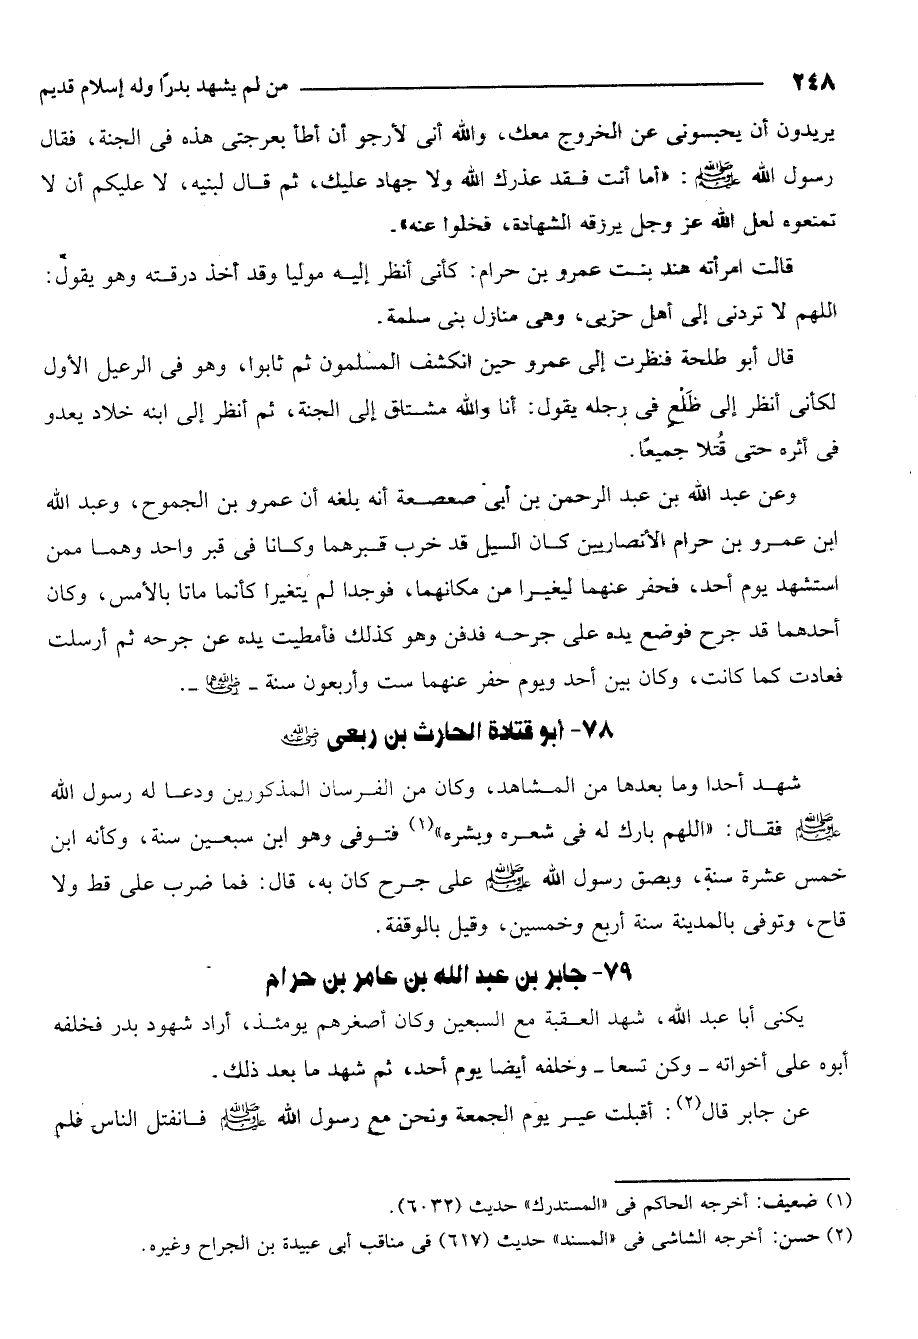 ٢٤٨ من لم يشهد بدرًا وله إسلام قديم
يريدون أن يحبسونى عن الخروج معك، والله أنى لأرجو أن أطأ بعرجتى هذه فى الجنة، فقال
رسول الله ﷺ: «أما أنت فقد عذرك الله ولا جهاد عليك، ثم قال لبنيه، لا عليكم أن لا
تمنعوه لعل الله عز وجل يرزقه الشهادة، فخلوا عنه».
قالت امرأته هند بنت عمرو بن حرام: كأنى أنظر إليه موليا وقد أخذ درقته وهو يقول:
اللهم لا تردنى إلى أهل حزبى، وهى منازل بنى سلمة.
قال أبو طلحة فنظرت إلى عمرو حين انكشف المسلمون ثم ثابوا، وهو فى الرعيل الأول
لكأنى أنظر إلى ظَلْعٍ فى رجله يقول: أنا والله مشتاق إلى الجنة، ثم أنظر إلى ابنه خلاد يعدو
فى أثره حتى قُتلا جميعًا.
وعن عبد الله بن عبد الرحمن بن أبى صعصعة أنه بلغه أن عمرو بن الجموح، وعبد الله
ابن عمرو بن حرام الأنصاريين كان السيل قد خرب قبرهما وكانا فى قبر واحد وهما ممن
استشهد يوم أحد، فحفر عنهما ليغيرا من مكانهما، فوجدا لم يتغيرا كأنما ماتا بالأمس، وكان
أحدهما قد جرح فوضع يده على جرحه فدفن وهو كذلك فأمطيت يده عن جرحه ثم أرسلت
فعادت كما كانت، وكان بين أحد ويوم حفر عنهما ست وأربعون سنة ـ رضي الله عنهما ـ.
٧٨- أبو قتادة الحارث بن ربعى رضي الله عنه
شهد أحدا وما بعدها من المشاهد، وكان من الفرسان المذكورين ودعا له رسول الله
ﷺ فقال: «اللهم بارك له فى شعره وبشره»(١) فتوفى وهو ابن سبعين سنة، وكأنه ابن
خمس عشرة سنة، وبصق رسول الله ﷺ على جرح كان به، قال: فما ضرب على قط ولا
قاح، وتوفى بالمدينة سنة أربع وخمسين، وقيل بالوقفة.
٧٩- جابر بن عبد الله بن عامر بن حرام
يكنى أبا عبد الله، شهد العقبة مع السبعين وكان أصغرهم يومئذ، أراد شهود بدر فخلفه
أبوه على أخواته ـ وكن تسعا ـ وخلفه أيضا يوم أحد، ثم شهد ما بعد ذلك.
عن جابر قال(٢): أقبلت عير يوم الجمعة ونحن مع رسول الله ﷺ فانفتل الناس فلم
(١) ضعيف: أخرجه الحاكم فى «المستدرك» حديث (٦٠٣٢).
(٢) حسن: أخرجه الشاشى فى «المسند» حديث (٦١٧) فى مناقب أبى عبيدة بن الجراح وغيره.